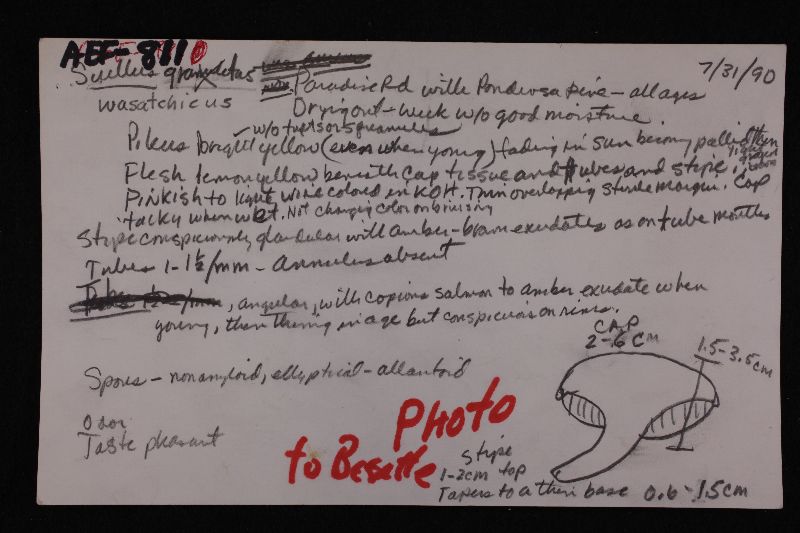 AEF-8110
Suillus granulatus 7/31/90
wasatchicus
Paradise Rd with Ponderosa pine - all ages
Drying out - week w/o good moisture.
w/o tufts or squamules
Pileus bright yellow (even when young) fading in sun becoming pallid then
Flesh lemon yellow beneath cap tissue and tubes and stipe,
Pinkish to light wine colored in KOH. Thin overlapping sterile margin. Cap
tacky when wet. Not changing color on bruising
Stipe conspicuously glandular with amber-brown exudates as on tube mouths
Tubes 1-1½/mm - Annulus absent
, angular, with copious salmon to amber exudate when
young, then thinning in age but conspicuous on rims.
CAP
2-6 cm
1.5-3.5cm
Spores - nonamyloid, elliptical - allantoid
Odor
Taste pleasant
Photo
to Besette
stipe
1-2cm top
Tapers to a thin base 0.6-1.5cm